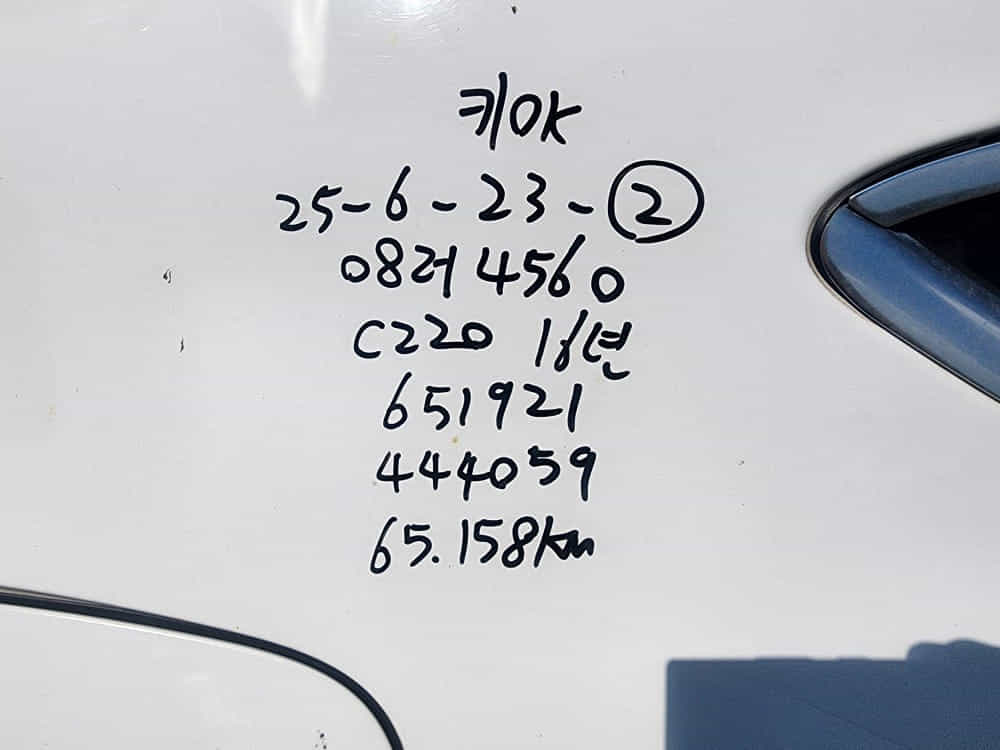 키OK
25-6-23-②
08러4560
C220 16년
651921
444059
65.158km